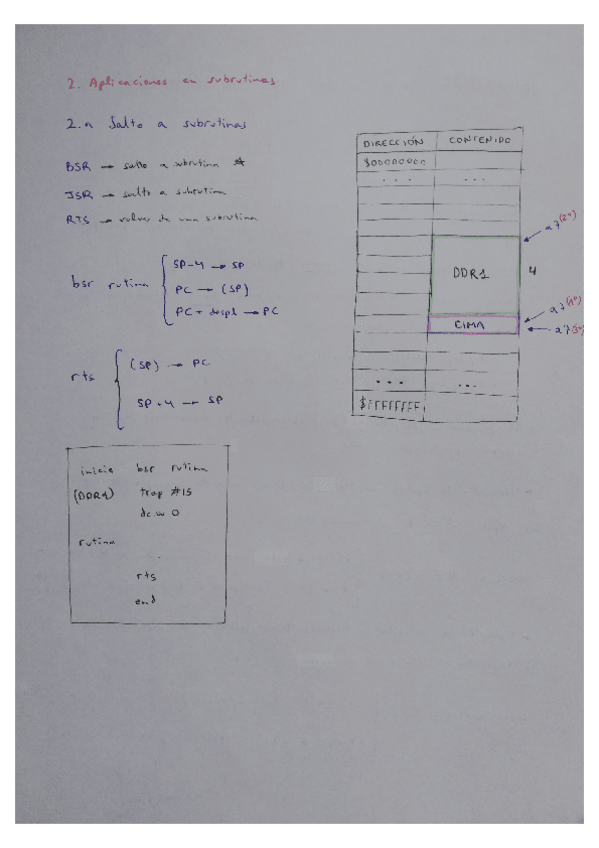 2. Aplicaciones en subrutinas
2.a Salto a subrutinas
BSR → salto a subrutina ☆
JSR → salto a subrutina
RTS → volver de una subrutina
bsr rutina
SP-4 → SP
PC → (SP)
PC + despl → PC
rts
(SP) → PC
SP + 4 → SP
inicio bsr rutina
(DDR1) trap #15
dc.w 0
rutina
.
rts
end
DIRECCIÓN CONTENIDO
$00000000
... ...
a7(2º)
DDR1 4
a7(1º)
CIMA
a7(3º)
... ...
$FFFFFFFF